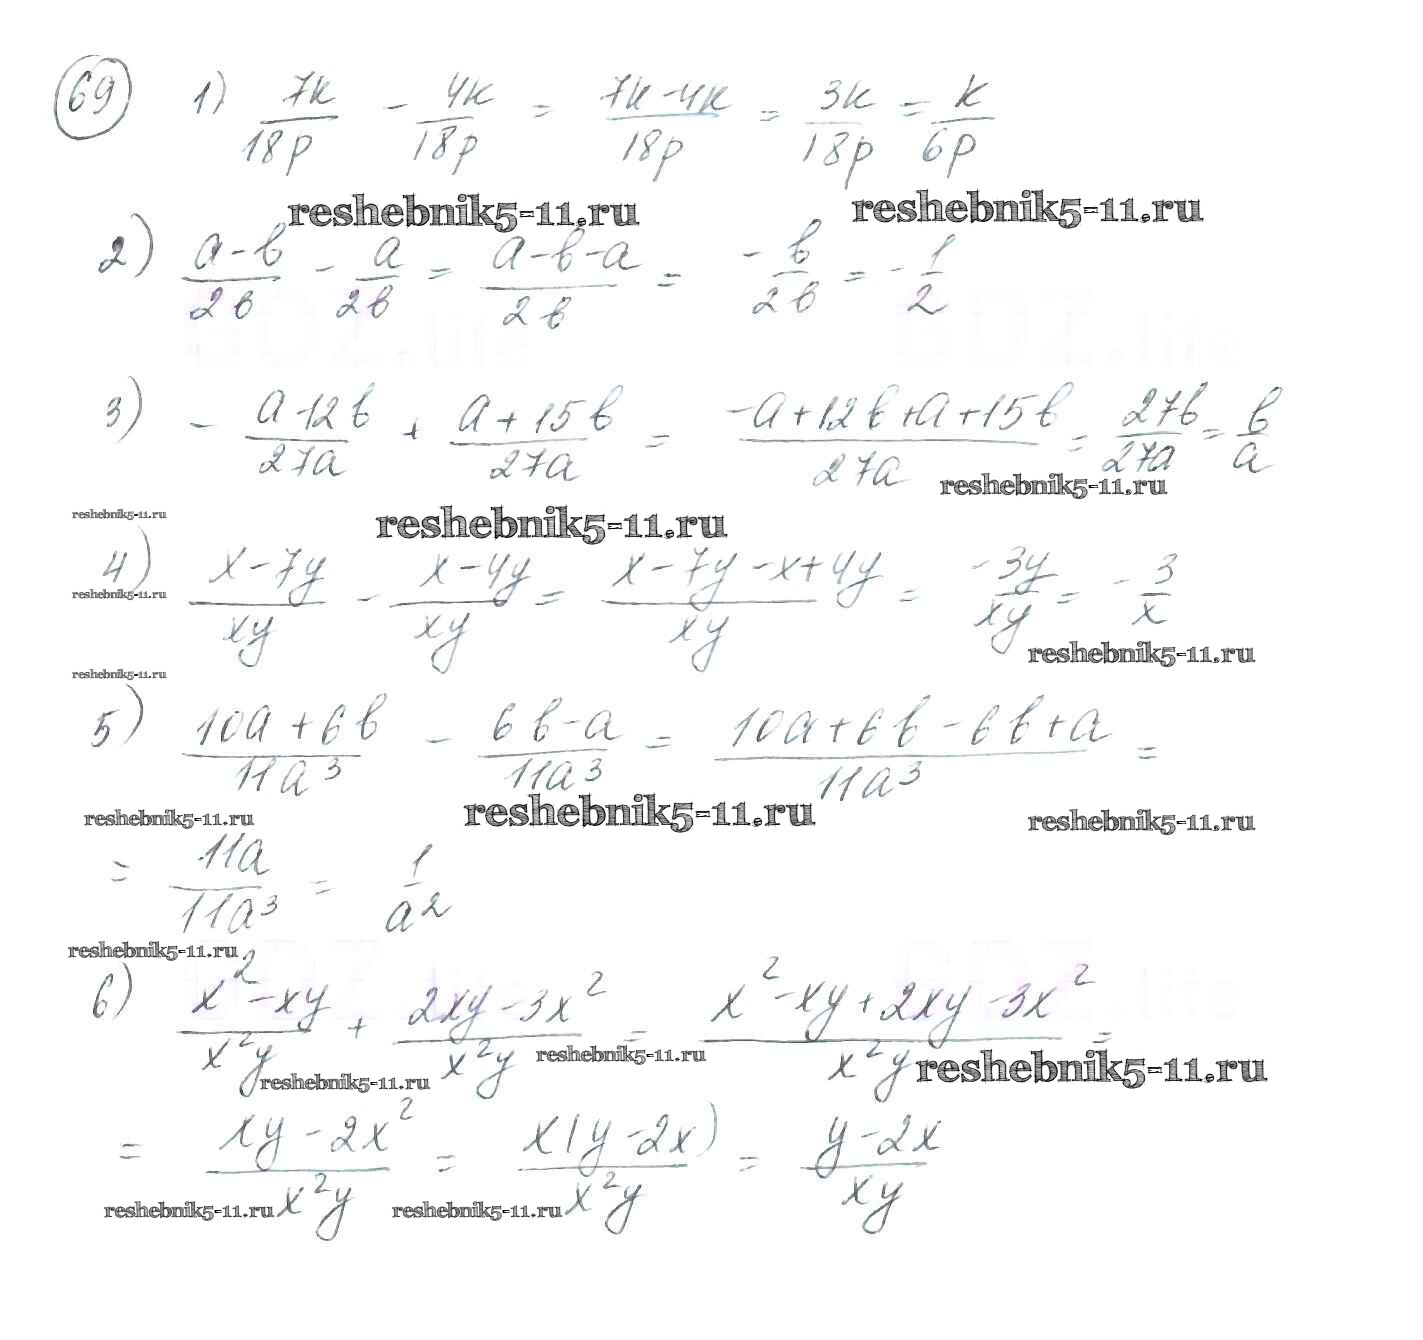 69 1) 7k/18p - 4k/18p = 7k-4k/18p = 3k/18p = k/6p
reshebnik5-11.ru reshebnik5-11.ru
2) a-b/2b - a/2b = a-b-a/2b = -b/2b = -1/2
GDZ.life GDZ.life
3) - a-12b/27a + a+15b/27a = -a+12b+a+15b/27a = 27b/27a = b/a
reshebnik5-11.ru
reshebnik5-11.ru reshebnik5-11.ru
4) x-7y/xy - x-4y/xy = x-7y-x+4y/xy = -3y/xy = -3/x
reshebnik5-11.ru
reshebnik5-11.ru
reshebnik5-11.ru
5) 10a+6b/11a³ - 6b-a/11a³ = 10a+6b-6b+a/11a³ =
reshebnik5-11.ru reshebnik5-11.ru reshebnik5-11.ru
= 11a/11a³ = 1/a²
reshebnik5-11.ru
GDZ.life GDZ.life
6) x²-xy/x²y + 2xy-3x²/x²y = x²-xy+2xy-3x²/x²y =
reshebnik5-11.ru reshebnik5-11.ru reshebnik5-11.ru
= xy-2x²/x²y = x(y-2x)/x²y = y-2x/xy
reshebnik5-11.ru reshebnik5-11.ru